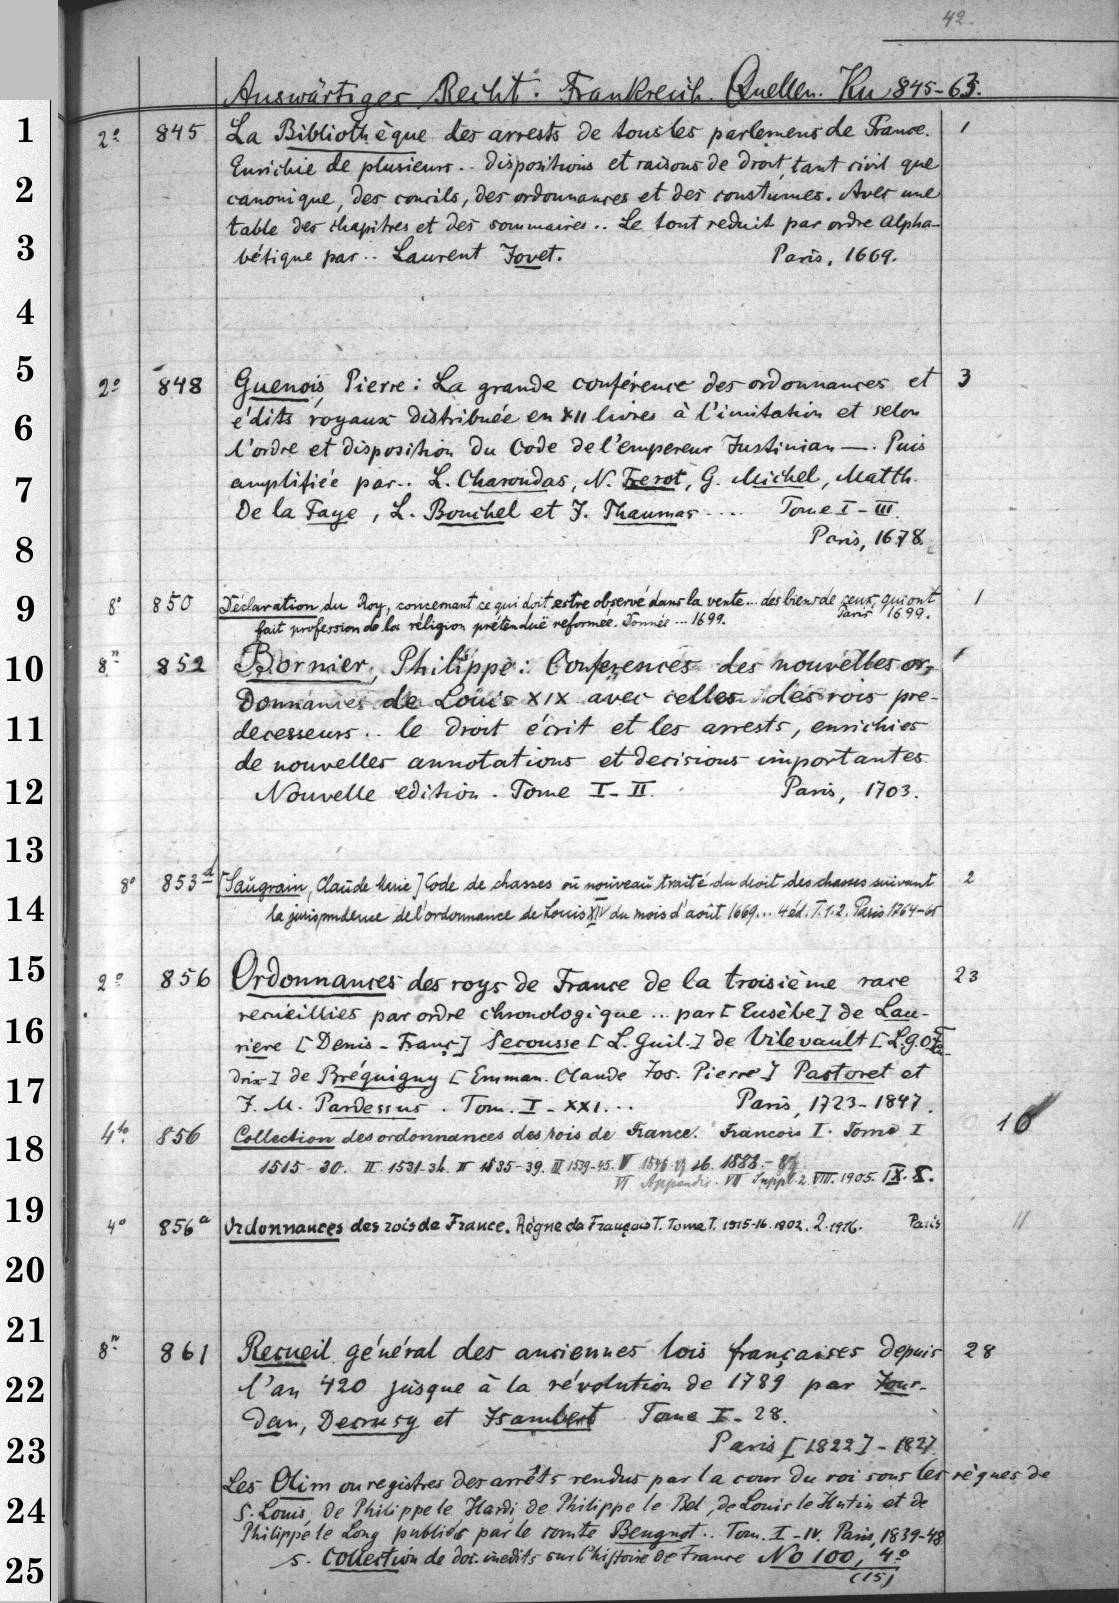 42.
Auswärtiges Recht. Frankreich. Quellen. Ku 845-63.
1
2
3
4
5
6
7
8
9
10
11
12
13
14
15
16
17
18
19
20
21
22
23
24
25
2º 845 La Bibliothèque des arrests de tous les parlemens de France. 1
Enrichie de plusieurs .. dispositions et raisons de droit, tant civil que
canonique, des concils, des ordonnances et des constumes. Avec une
table des chapitres et des sommaires .. Le tout reduit par ordre alpha-
bétique par .. Laurent Jovet. Paris, 1669.
2º 848 Guenois, Pierre: La grande conférence des ordonnances et 3
édits royaux distribuée en XII livres à l'imitation et selon
l'ordre et disposition du Code de l'empereur Justinian —. Puis
amplifiée par .. L. Charondas, N. Frerot, G. Michel, Matth.
De la Faye, L. Bouchel et J. Thaumas .... Tome I-III.
Paris, 1678.
8º 850 Déclaration du Roy, concernant ce qui doit estre observé dans la vente ... des biens de ceux, qui ont 1
fait profession de la réligion prétenduë reformée. Donnée ... 1699. Paris 1699.
8º 852 Bornier, Philippe: Conferences des nouvelles or- 1
donnances de Louis XIX avec celles des rois pre-
decesseurs .. le droit écrit et les arrests, enrichies
de nouvelles annotations et decisions importantes.
Nouvelle edition. Tome I-II. Paris, 1703.
8º 853d [Saugrain, Claude Marie] Code de chasses ou nouveau traité du droit des chasses suivant 2
la jurisprudence de l'ordonnance de Louis XIV du mois d'août 1669... 4 éd. T. 1. 2. Paris 1764-65
2º 856 Ordonnances des roys de France de la troisième race 23
recueillies par ordre chronologique ... par [Eusèbe] de Lau-
riere [Denis-Franç] Secousse [L. Guil.] de Vilevault [L.G.O.F.
drix] de Bréquigny [Emman. Claude Jos. Pierre] Pastoret et
J. M. Pardessus. Tom. I-XXI... Paris, 1723-1847.
4to. 856 Collection des ordonnances des rois de France. Francois I. Tome I 10
1515-30. II 1531-34. III 1535-39. IV 1539-45. V 1546-47
VI Appendix. VII Suppl. 2. VIII. 1905. IX. X.
4º 856a Ordonnances des rois de France. Règne de François I. Tome I. 1515-16. 1902. 2. 1916. Paris 11
8º 861 Recueil général des anciennes lois françaises depuis 28
l'an 420 jusque à la révolution de 1789 par Jour-
dan, Decrusy et Isambert Tome I-28.
Paris [1822]-1827
Les Olim ou registres des arrêts rendus par la cour du roi sous les règues de
S. Louis, de Philippe le Hardi de Philippe le Bel, de Louis le Hutin et de
Philippe le Long publiés par le comte Beugnot .. Tom. I-IV. Paris, 1839-48
s. Collection de doc. inedits sur l'histoire de France No 100, 4º
(15)